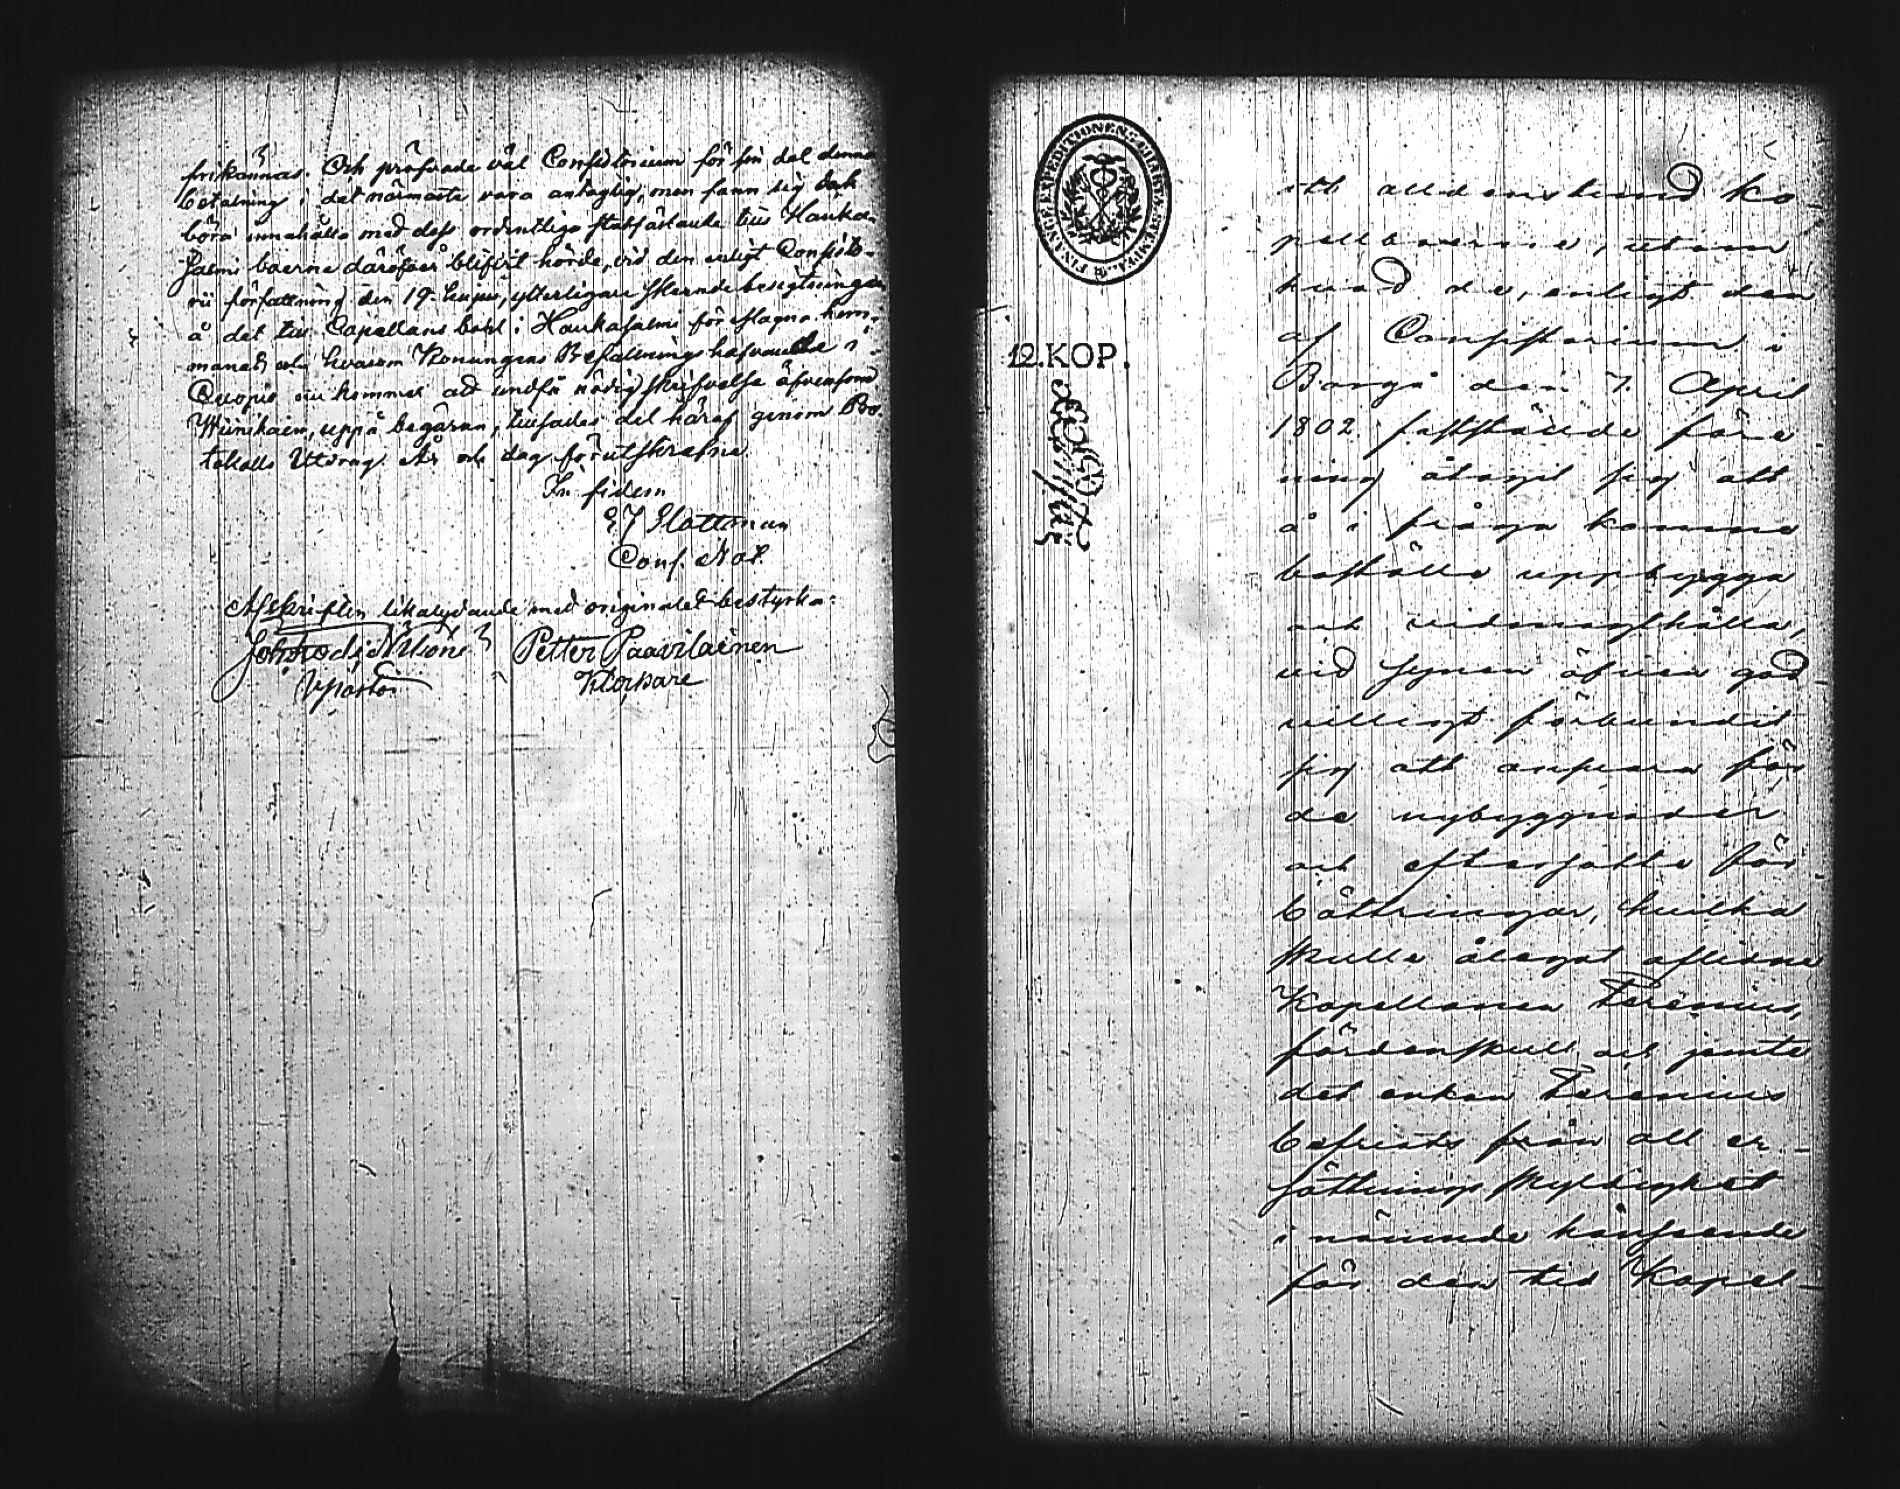 frikännas. Och pröfvade väl Consistorium för sin del denna
betalning i det närmaste vara antaglig, men fann sig dock
böra innehålla med dess ordentliga fastställande tills Hauka-
salmi boerne däröfver blifvit hörde, vid den enligt Consisto-
rii författning den 19. hujus, ytterligare skeende besigtningen
å det till Capellans bohl i Haukasalmi för slagna hem-
manet och hvarom Konungens Befallningshafvande i
Cuopio nu kommer att undfå nödig skrifvelse äfvensom
Wänikain, uppå begäran, tillsändes del häraf genom Pro-
tokolls Utdrag. År och dag förutskrefne
In fidem
Conf. Not.
Afskriftens likalydande med originalet bestyrka:
Petter Paavilainen
V pastor Klockare
FINANCE EXPEDITIONEN
12.KOP.
ett alldenstund ka
pellboerne, utom
hvad de, enligt den
af Consistorium i
Borgå den 7. April
1802 fastställde före
ning åtagit sig att
å i fråga komne
boställe uppbygga
och vidmagthålla,
vid synen äfven god
villigt förbundit
sig att ansvara för
de nybyggnader
och eftersatte för
bättringar, hvilka
skulle ålegat aflidne
Kapellanen Perenius,
fördenskull och jemte
det enkan Perenius
befriats från all er-
sättnings skyldighet
i nämnde hänseende
för den tid Kapel-